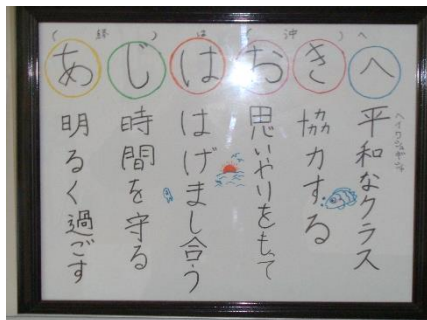 へ(沖)は(終)
へ
平和なクラス
き
協力する
お
思いやりをもって
は
はげまし合う
じ
時間を守る
あ
明るく過ごす